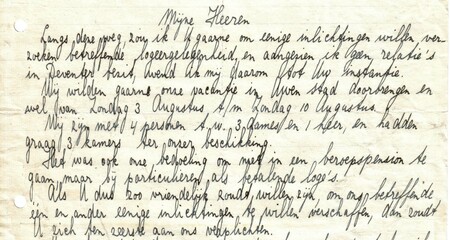 Mijne Heeren
Langs deze weg zou ik U gaarne om eenige inlichtingen willen ver
zoeken betreffende logeergelegenheid, en aangezien ik geen relatie's
in Deventer bezit, wend ik mij daarom tot Uw instantie.
Wij wilden gaarne onze vacantie in Uwen stad doorbrengen en
wel van Zondag 3 Augustus t/m Zondag 10 Augustus.
Wij zijn met 4 personen t.w. 3 dames en 1 heer, en hadden
graag 3 kamers ter onzer beschikking.
Het was ook onze bedoeling om niet in een beroepspension te
gaan maar bij particulieren als betalende logé's.
Als U dus zoo vriendelijk zoudt willen zijn, om ons betreffende
een en ander eenige inlichtingen te willen verschaffen, dan zoudt
U zich ten zeerste aan ons verplichten.